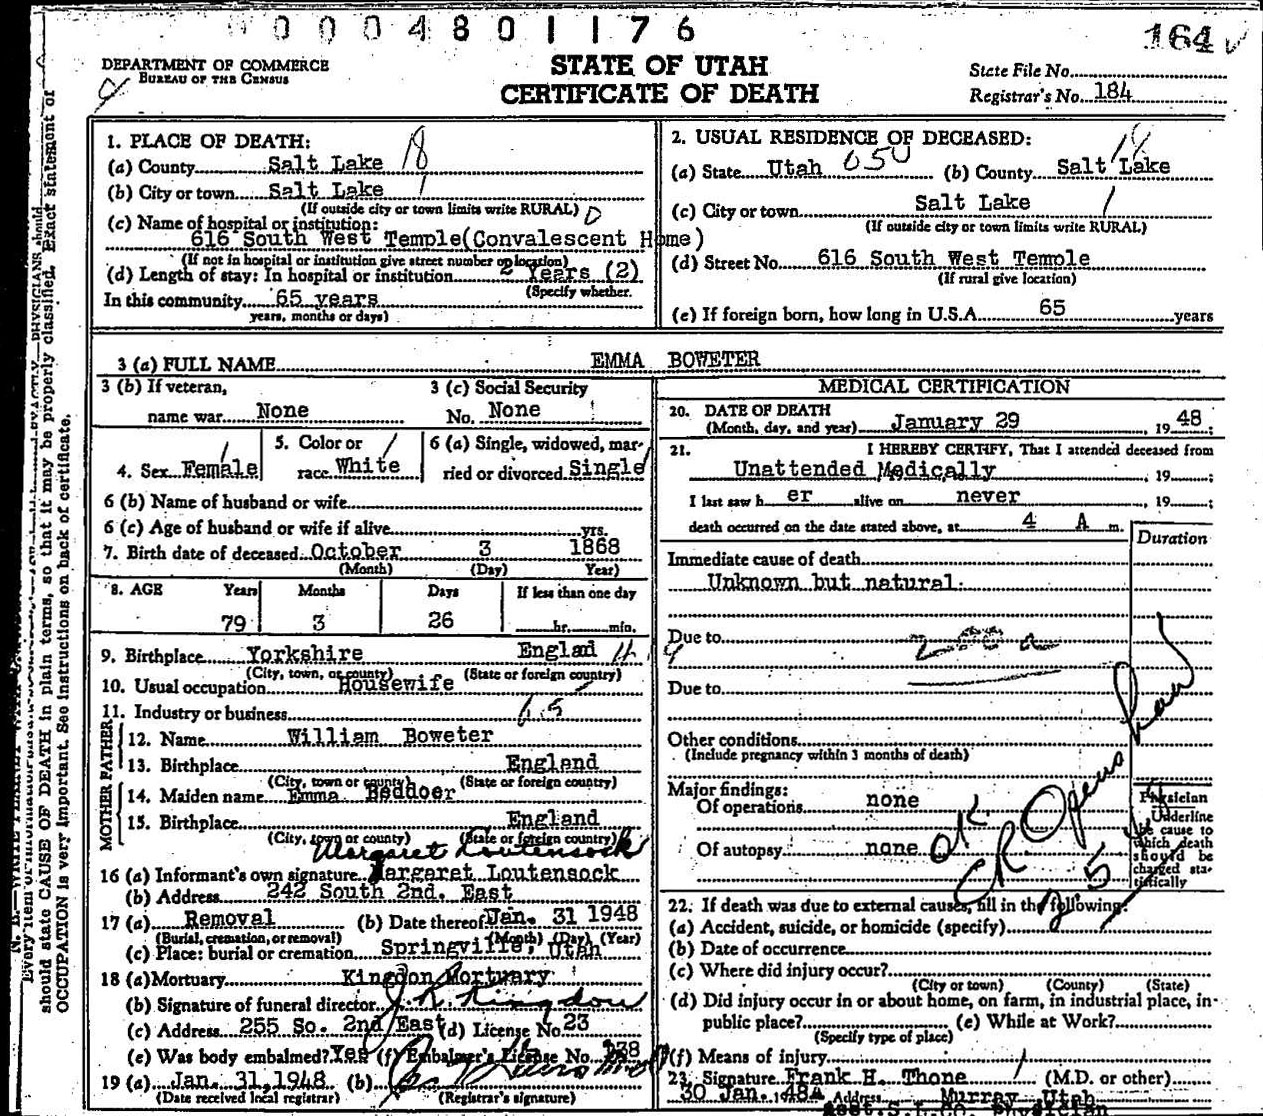 0004801176
164
DEPARTMENT OF COMMERCE
BUREAU OF THE CENSUS
STATE OF UTAH
CERTIFICATE OF DEATH
State File No.
Registrar's No. 184
1. PLACE OF DEATH:
(a) County Salt Lake 18
(b) City or town Salt Lake 1
(If outside city or town limits write RURAL)
(c) Name of hospital or institution:
616 South West Temple(Convalescent Home)
(If not in hospital or institution give street number or location)
(d) Length of stay: In hospital or institution 2 Years (2)
(Specify whether
In this community 65 years
years, months or days)
2. USUAL RESIDENCE OF DECEASED:
(a) State Utah 050 (b) County Salt Lake 18
(c) City or town Salt Lake 1
(If outside city or town limits write RURAL)
(d) Street No. 616 South West Temple
(If rural give location)
(e) If foreign born, how long in U.S.A 65 years
3 (a) FULL NAME EMMA BOWETER
3 (b) If veteran,
name war None
3 (c) Social Security
No. None
4. Sex Female
5. Color or
race White
6 (a) Single, widowed, mar-
ried or divorced Single
6 (b) Name of husband or wife
6 (c) Age of husband or wife if alive yrs.
7. Birth date of deceased October 3 1868
(Month) (Day) Year)
8. AGE Years Months Days If less than one day
79 3 26 hr. min.
9. Birthplace Yorkshire Englad
(City, town, or county) (State or foreign country)
10. Usual occupation Housewife
11. Industry or business
FATHER
12. Name William Boweter
13. Birthplace England
(City, town or county) (State or foreign country)
MOTHER
14. Maiden name Emma Beddoer
15. Birthplace England
(City, town or county) (State or foreign country)
Margaret Loutensock
16 (a) Informant's own signature Margaret Loutensock
(b) Address 242 South 2nd. East
17 (a) Removal (b) Date thereof Jan. 31 1948
(Burial, cremation, or removal) (Month) (Day) (Year)
(c) Place: burial or cremation Springville, Utah
18 (a) Mortuary Kingdon Mortuary
(b) Signature of funeral director J. R. Kingdon
(c) Address 255 So. 2nd East (d) License No. 23
(e) Was body embalmed? Yes (f) Embalmer's License No. 238
19 (a) Jan. 31,1948 (b)
(Date received local registrar) (Registrar's signature)
MEDICAL CERTIFICATION
20. DATE OF DEATH
(Month, day, and year) January 29, 1948;
21. I HEREBY CERTIFY, That I attended deceased from
Unattended Medically, 19 ;
I last saw h er alive on never, 19 ;
death occurred on the date stated above, at 4 A m.
Duration
Immediate cause of death
Unknown but natural.
Due to 200a
Due to
Other conditions
(Include pregnancy within 3 months of death)
Major findings:
Of operations none
Of autopsy none
OK
2-5-
Physician
Underline
the cause to
which death
should be
charged sta-
tistically
22. If death was due to external causes, fill in the following:
(a) Accident, suicide, or homicide (specify)
(b) Date of occurrence
(c) Where did injury occur?
(City or town) (County) (State)
(d) Did injury occur in or about home, on farm, in industrial place, in
public place? (e) While at Work?
(Specify type of place)
(f) Means of injury
23. Signature Frank H. Thone (M.D. or other)
30 Jan. 1948 Address Murray Utah
Asst. S.L.CO. Physician
Every item of information
should state CAUSE OF DEATH in plain terms, so that it may be properly classified. Exact statement of
OCCUPATION is very important. See instructions on back of certificate.